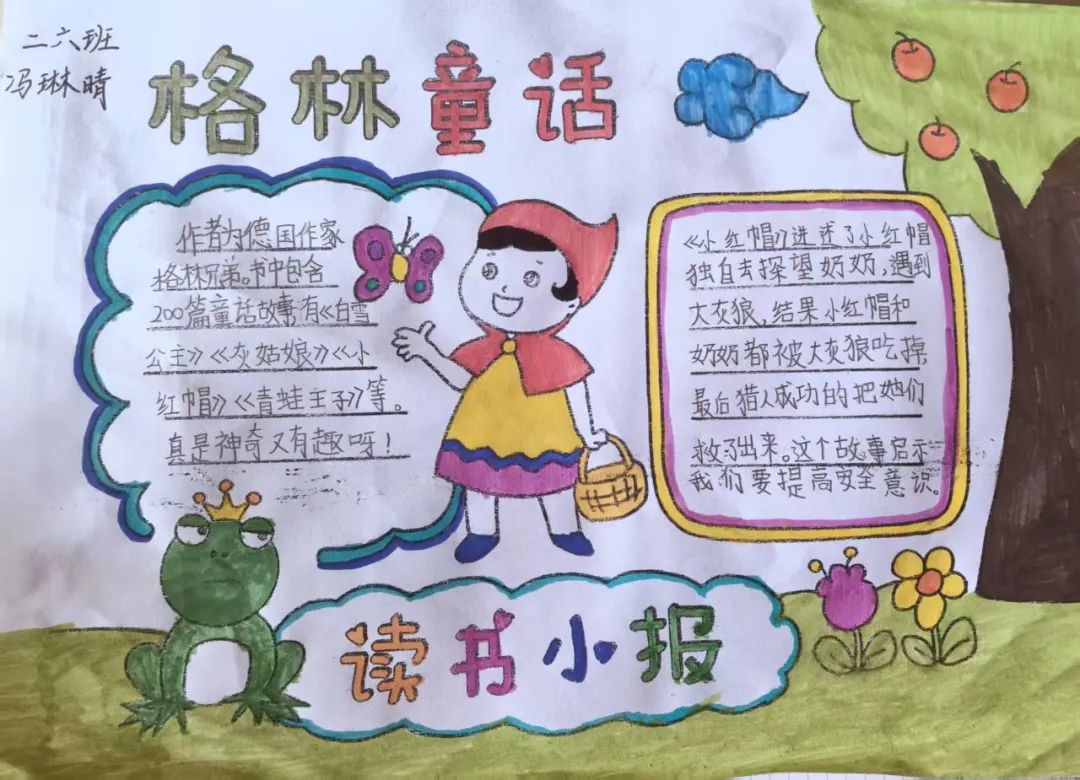 二六班
冯琳晴
格林童话
作者为德国作家
格林兄弟。书中包含
200篇童话故事,有《白雪
公主》《灰姑娘》《小
红帽》《青蛙王子》等。
真是神奇又有趣呀!
《小红帽》讲述了小红帽
独自去探望奶奶,遇到
大灰狼,结果小红帽和
奶奶都被大灰狼吃掉
最后猎人成功的把她们
救了出来。这个故事启示
我们要提高安全意识。
读书小报